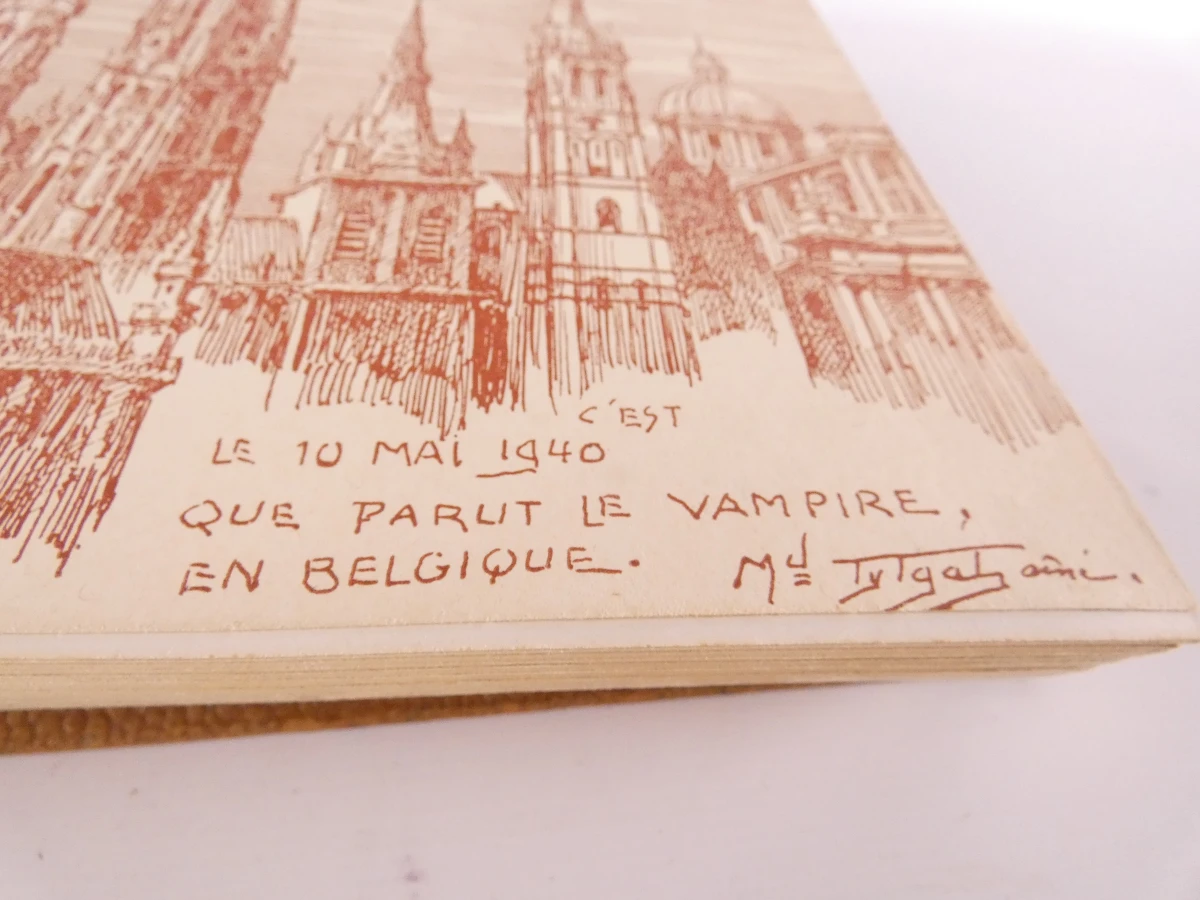 C'EST
LE 10 MAI 1940
QUE PARUT LE VAMPIRE,
EN BELGIQUE. Md Tytgat aîné.